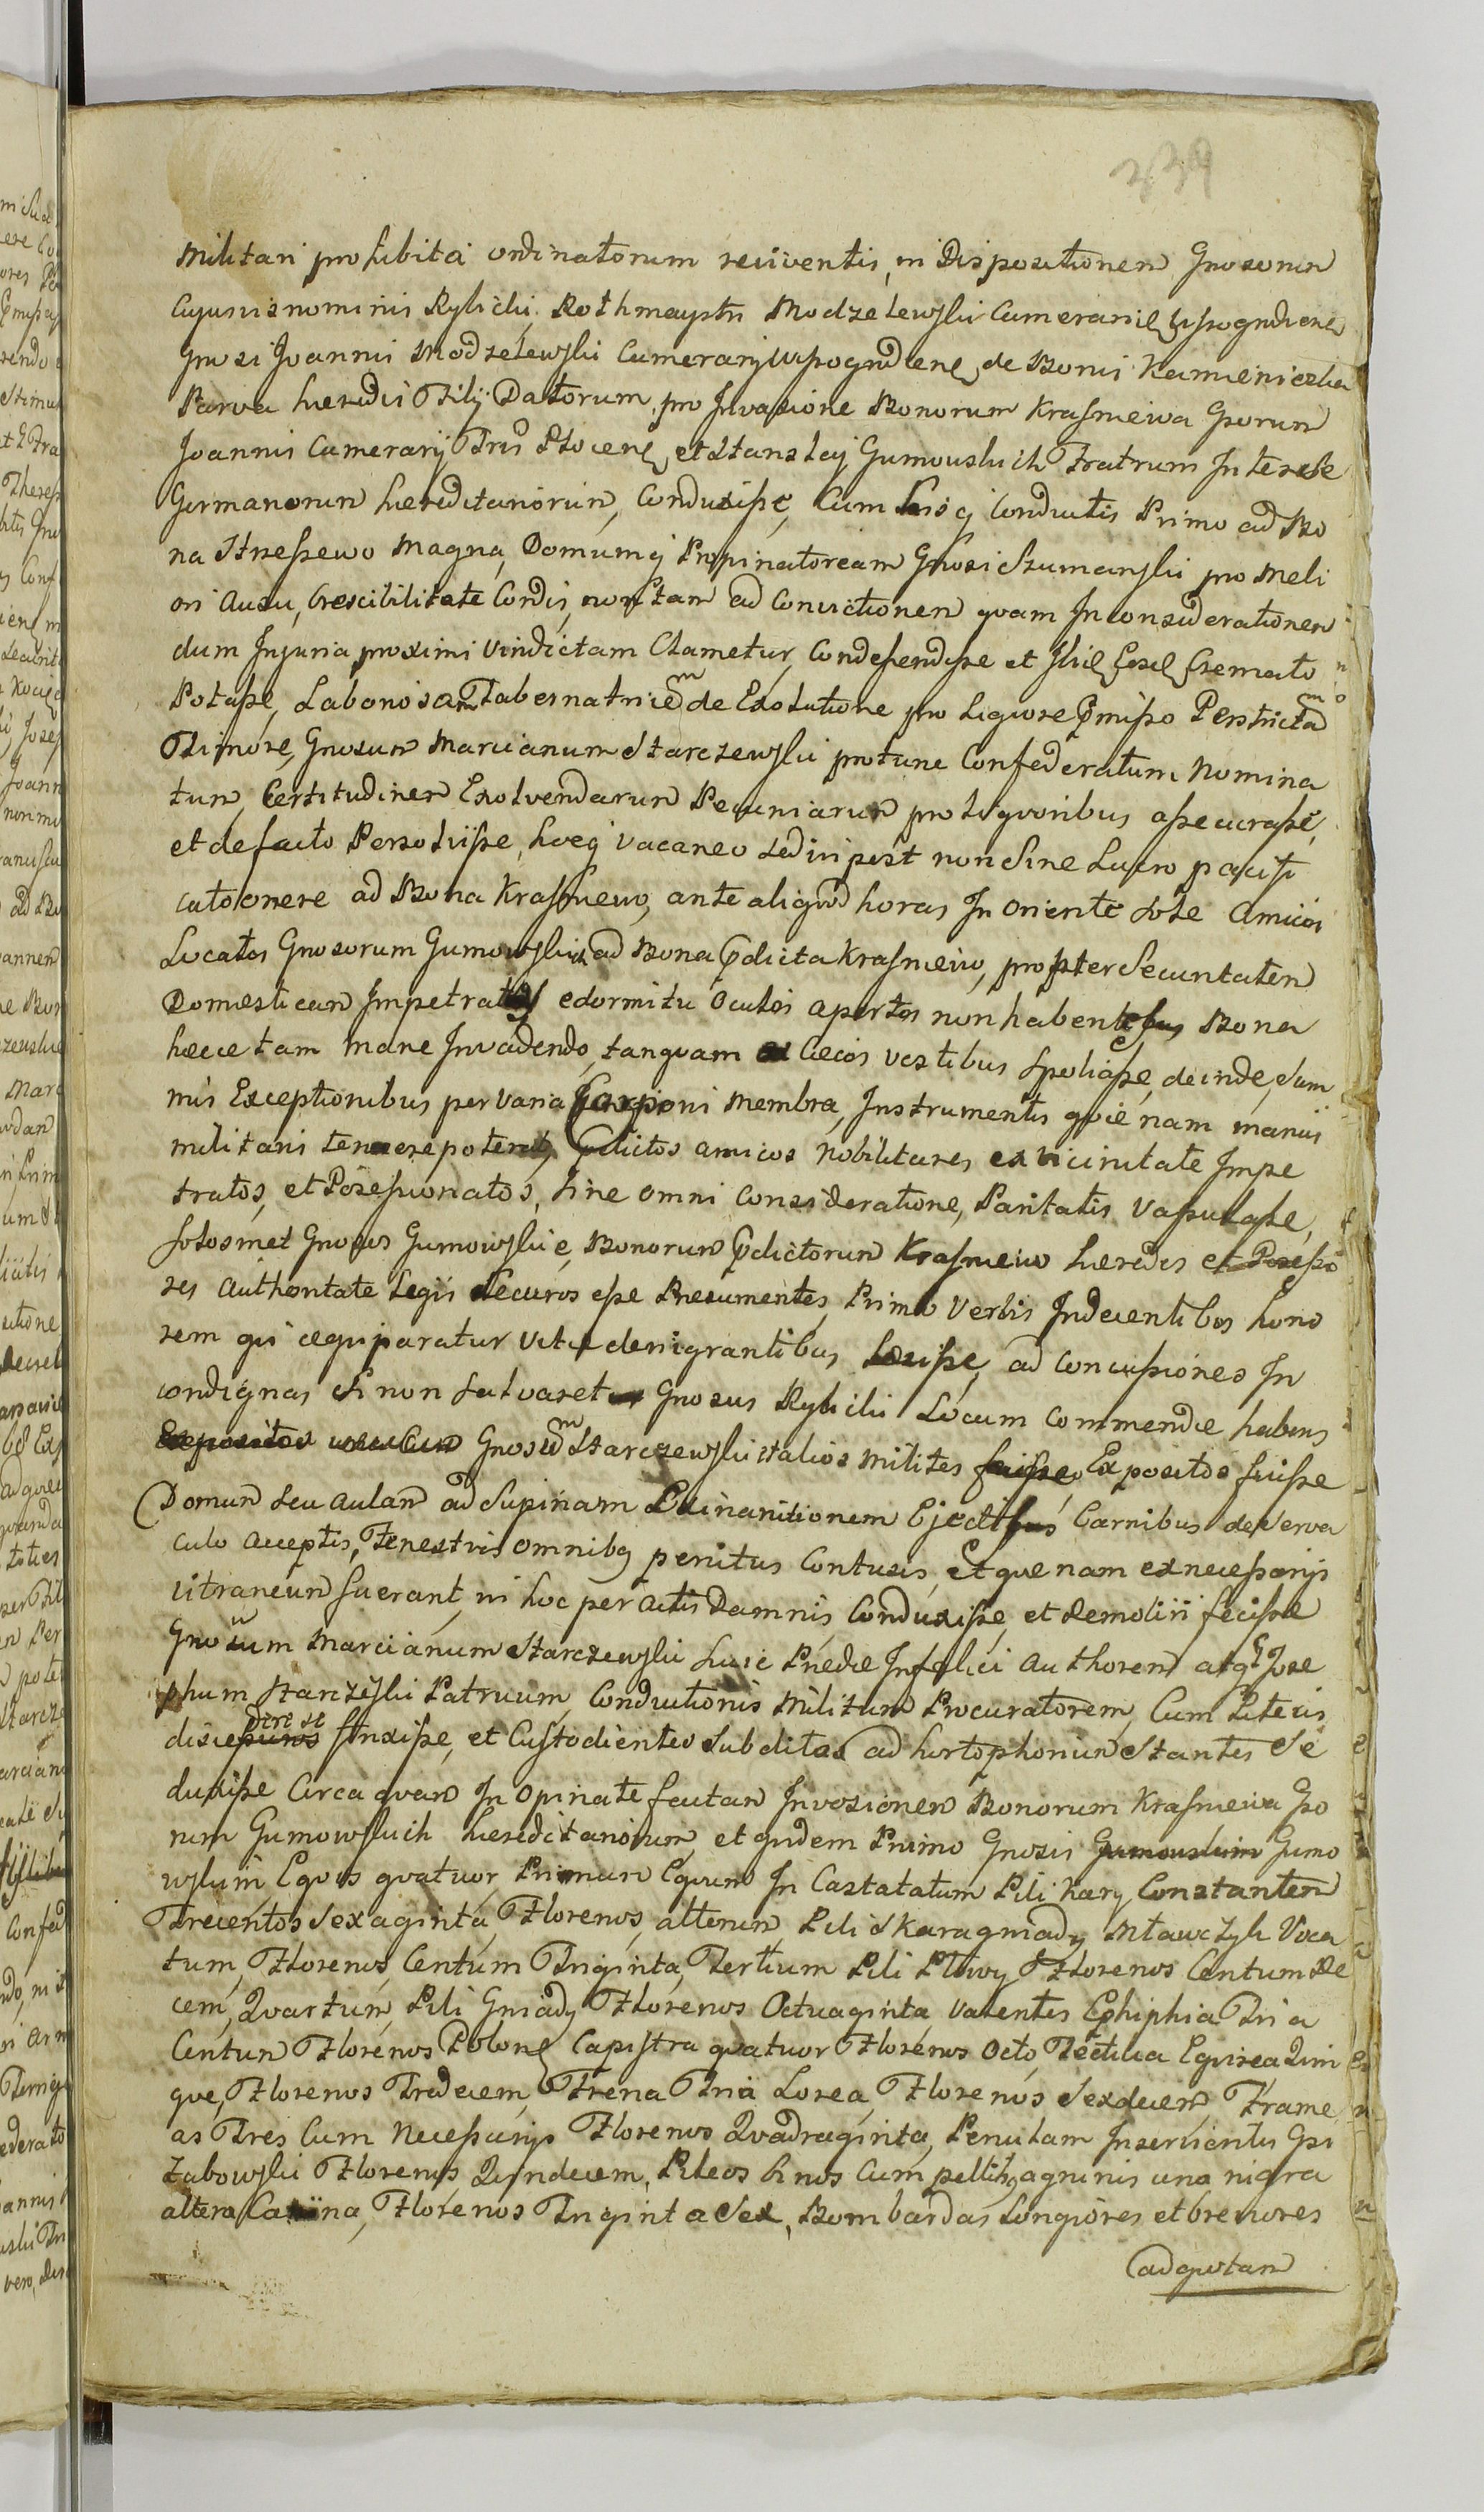 339
Militari prohibita ordinatorum reviventis, in Dispositionem Gnosorum
Cujusvis nominis Rylicki, Rothmaystri Modzelewski Cameranie Wyszogrdiene
Gnosi Joannis Modzelewski Camerarij Wyszogrdiene, de Bonis Kamieniczka
Parva hæredis Filij Datorum, pro Invasione Bonorum Krasniewa Gnorum
Joannis Camerarij Tris Plocens, et Stanslaj Gumowskich Fratrum Interese
Germanorum hæreditariorum, Conduxisse, Cum hisq Conductis Primo ad Bo
na Strzeszewo Magna, Domumq Propinatoream Gnosi Szumanski pro meli
ori Ausu, Crescibilitate Cordis, non tam ad Convictionem quam Inconsiderationem
dum Injuria proximi Vindictam Clametur, Condescendisse et Ibie Cremato
Potasse, Laboriosam Tabernatricem de Exolutione pro Liquore Pmisso Perstrictam
Timore, Gnosum Marcianum Starczewski pro tunc Confederatum Nomina
tum, Certitudinem Exolvendarum Pecuniarum pro Liqvoribus assecurasse,
et de facto Persolvisse, hocq vacaneo sed in post non Sine Lucro pacisi
cato onere ad Bona Krasniewo, ante aliqvod horas In Oriente Sole Amicos
Locatos Gnosorum Gumowskich ad Bona Pdicta Krasniewo, propter Securitatem
Domesticam Impetratos edormitu Oculos apertos non habentes Bona
hæcce tam mane Invadendo, tanqvam Cæcos vestibus Spoliasse, deinde, Sum
mis Exceptionibus per varia Corporis membra, Instrumentis qvie nam manus
militaris tenere poterat, Pdictos amicos Nobilitares ex vicinitate Impe
tratos, et Posessionatos, Sine Omni Consideratione, Paritatis Vapulasse,
Solosmet Gnosos Gumowskie, Bonorum Pdictorum Krasniewo hæredes et Posesso
res Authoritate Legis Securos esse Presumentes, Primo Verbis Indecentibus hono
rem qui æquiparatur Vitæ denigrantibus Læsisse, ad Concussiones In
condignas Si non Salvaretur Gnosus Rylicki Locum Commendæ habens
Expositos Gnosum Starczewski et alios Milites fuisse, Expositos fuisse
Domum Seu Aulam ad Supinam Exinanitionem Ejectis Carnibus de Serva
culo acceptis, Fenestris omnibq penitus Contusis, et que nam ex necessarijs
vitraneum fuerant, in hoc peractis Damnis, Conduxisse, et demoliri fecisse
Gnosum Marcianum Starczewski huic Prædæ Infelici Authorem atq Jose
phum Starczeski Patruum, Conductionis Militum Procuratorem, Cum Literis
discedere se strixisse, et Custodientes Subditos ad hortophonium Stantes Se
duxisse Circa qvam In Opinate factam Invasionem Bonorum Krasniewa Gno
rum Gumowskich hæreditariorum, et qvidem Primo Gnosis Gumouskim Gumo
wskim, Eqvos qvatuor, Primum Eqvum In Castratatum Pili Kary, Constantem
Trecentos Sexaginta, Florenos, alterum, Pili Skarogniady Mławczyk Voca
tum, Florenos, Centum Triginta, Tertium Pili Plowy, Florenos Centum De
cem, Qvartum, Pili Gniady Florenos Octuaginta, valentes Ephiphia Tria
Centum Florenos Polone Capistra qvatuor Florenos Octo, Tectilia Eqvirea Qvin
qve, Florenos Tredecem, Frena Tria Lorea, Florenos Sexdecem, Frame
as Tres Cum Necessarijs Florenos Qvadraginta, Penulam Inservientis Gsi
Zabowski Florenos Qvindecem, Pileos binos Cum pellibq agninis una nigra
altera Casina, Florenos Triginta Sex, Bombardas Longiores et breviores
ad qvotam